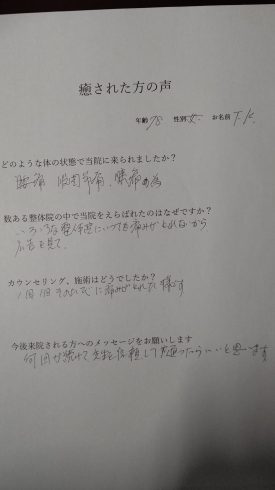 癒された方の声
年齢 78 性別 女 お名前 T.K.
どのような体の状態で当院に来られましたか？
腰痛 股関節痛、膝痛の為
数ある整体院の中で当院をえらばれたのはなぜですか？
いろいろな整体院にいっても痛みがとれないから
広告を見て、
カウンセリング、施術はどうでしたか？
1回1回そのたびに痛みがとれた様です
今後来院される方へのメッセージをお願いします
何回か続けて先生を信頼して通ったらいいと思います